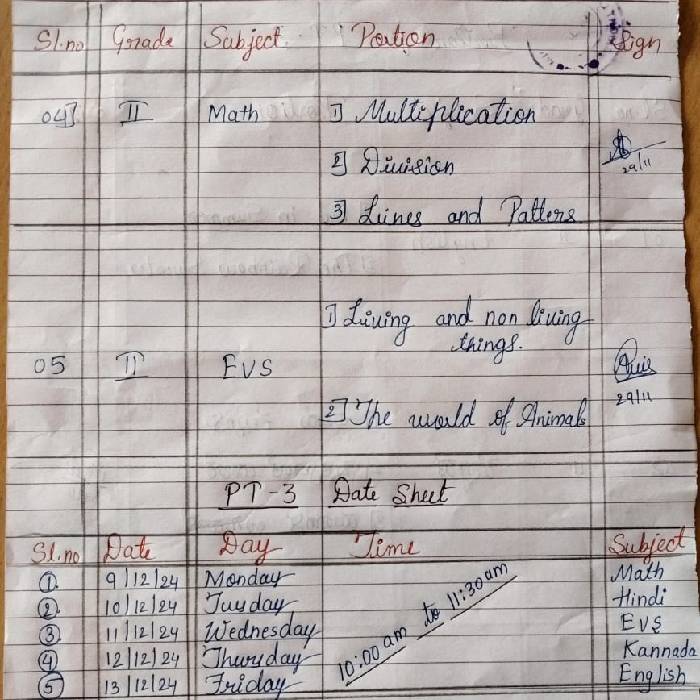 Sl.no Grade Subject Portion Sign
04] II Math 1] Multiplication
2] Division
29/11
3] Lines and Patters
1] Living and non living
things.
05 II EVS
29/11
2] The world of Animals
PT-3 Date Sheet
Sl.no Date Day Time Subject
1 9/12/24 Monday Math
2 10/12/24 Tuesday Hindi
3 11/12/24 Wednesday EVS
4 12/12/24 Thursday Kannada
5 13/12/24 Friday English
10:00 am to 11:30 am